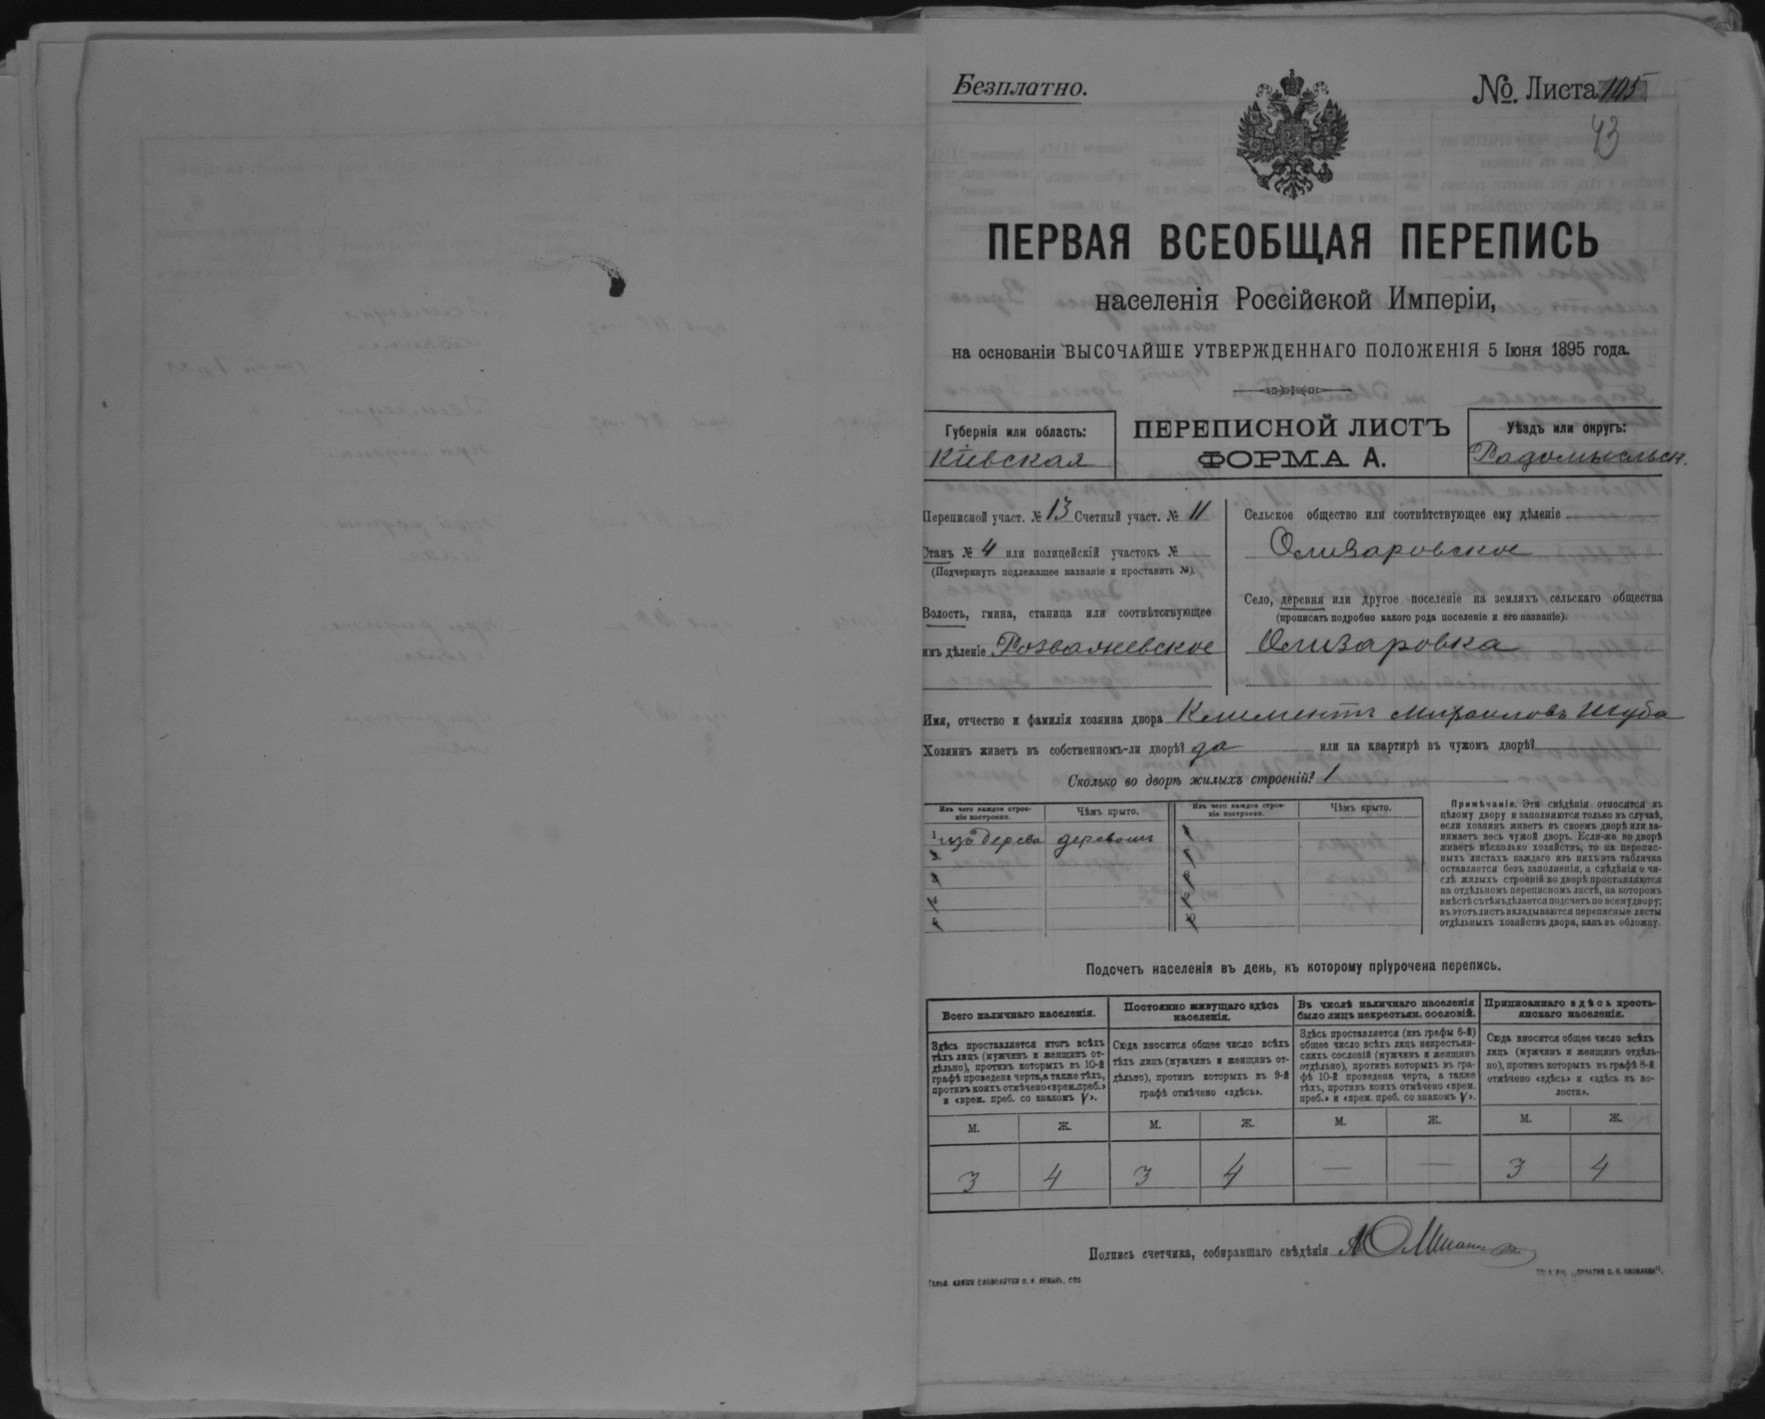 Безплатно.
№ Листа 105
43
ПЕРВАЯ ВСЕОБЩАЯ ПЕРЕПИСЬ
населенія Россійской Имперіи,
на основаніи ВЫСОЧАЙШЕ УТВЕРЖДЕННАГО ПОЛОЖЕНІЯ 5 Іюня 1895 года.
Губернія или область:
Кіевская
ПЕРЕПИСНОЙ ЛИСТЪ
ФОРМА А.
Уѣздъ или округъ:
Радомысльск.
Переписной участ. № 13 Счетный участ. № 11
Станъ № 4 или полицейскій участокъ №
(Подчеркнуть подлежащее названіе и проставить №).
Волость, гмина, станица или соотвѣтствующее
имъ дѣленіе Розважевское
Сельское общество или соотвѣтствующее ему дѣленіе
Олизаровское
Село, деревня или другое поселеніе на земляхъ сельскаго общества
(прописать подробно какого рода поселеніе и его названіе).
Олизаровка
Имя, отчество и фамилія хозяина двора Климентъ Михаиловъ Шуба
Хозяинъ живетъ въ собственномъ-ли дворѣ? да или на квартирѣ въ чужомъ дворѣ?
Сколько во дворѣ жилыхъ строеній? 1
Изъ чего каждое строеніе построено.
Чѣмъ крыто.
Изъ чего каждое строеніе построено.
Чѣмъ крыто.
1 изъ дерева деревомъ
2
3
4
5
Примѣчаніе. Эти свѣдѣнія относятся къ
цѣлому двору и заполняются только въ случаѣ,
если хозяинъ живетъ въ своемъ дворѣ или за-
нимаетъ весь чужой дворъ. Если-же во дворѣ
живетъ нѣсколько хозяйствъ, то на перепис-
ныхъ листахъ каждаго изъ нихъ эта табличка
оставляется безъ заполненія, а свѣдѣнія о чи-
слѣ жилыхъ строеній во дворѣ проставляются
на отдѣльномъ переписномъ листѣ, на которомъ
вмѣстѣ съ тѣмъ дѣлается подсчетъ по всему двору;
въ этотъ листъ вкладываются переписные листы
отдѣльныхъ хозяйствъ двора, какъ въ обложку.
Подсчетъ населенія въ день, къ которому пріурочена перепись.
Всего наличнаго населенія.
Здѣсь проставляется итогъ всѣхъ
тѣхъ лицъ (мужчинъ и женщинъ от-
дѣльно), противъ которыхъ въ 10-й
графѣ проведена черта, а также тѣхъ,
противъ коихъ отмѣчено «врем. преб.»
и «врем. преб. со знакомъ V».
Постоянно живущаго здѣсь
населенія.
Сюда вносится общее число всѣхъ
тѣхъ лицъ (мужчинъ и женщинъ от-
дѣльно), противъ которыхъ въ 9-й
графѣ отмѣчено «здѣсь».
Въ числѣ наличнаго населенія
было лицъ некрестьян. сословій.
Здѣсь проставляется (изъ графы 6-й)
общее число всѣхъ лицъ некрестьян-
скихъ сословій (мужчинъ и женщинъ
отдѣльно), противъ которыхъ въ гра-
фѣ 10-й проведена черта, а также
тѣхъ, противъ коихъ отмѣчено «врем.
преб.» и «врем. преб. со знакомъ V».
Приписаннаго здѣсь кресть-
янскаго населенія.
Сюда вносится общее число всѣхъ
лицъ (мужчинъ и женщинъ отдѣль-
но), противъ которыхъ въ графѣ 8-й
отмѣчено «здѣсь» и «здѣсь въ во-
лости».
М. Ж. М. Ж. М. Ж. М. Ж.
3 4 3 4 — — 3 4
Подпись счетчика, собиравшаго свѣдѣнія